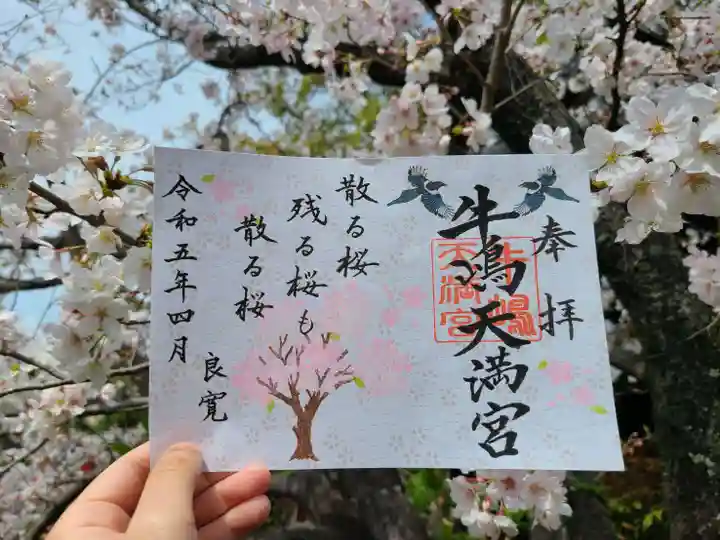 奉拝
牛嶋天満宮
牛嶋
天満宮
散る桜
残る桜も
散る桜
良寛
令和五年四月